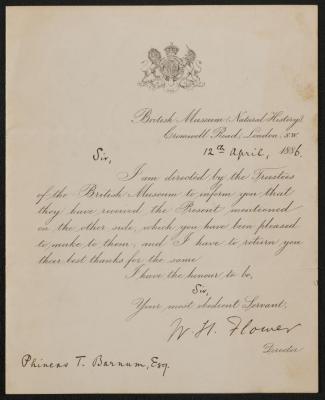 British Museum (Natural History)
Cromwell Road, London, S.W.
12th April, 1886.
Sir,
I am directed by the Trustees
of the British Museum to inform you that
they have received the Present mentioned
on the other side, which you have been pleased
to make to them, and I have to return you
their best thanks for the same
I have the honour to be,
Sir,
Your most obedient Servant,
W. H. Flower
Director
Phineas T. Barnum, Esq.